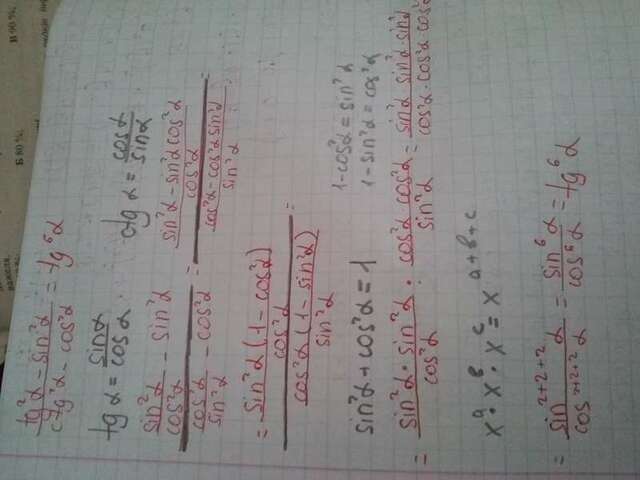 (tg²α − sin²α)/(ctg²α − cos²α) = tg⁶α
tg α = sinα/cosα   ctg α = cosα/sinα
(sin²α/cos²α − sin²α)/(cos²α/sin²α − cos²α) = ((sin²α − sin²α cos²α)/cos²α)/((cos²α − cos²α sin²α)/sin²α) =
= (sin²α(1 − cos²α)/cos²α)/(cos²α(1 − sin²α)/sin²α) =
sin²α + cos²α = 1   1 − cos²α = sin²α
1 − sin²α = cos²α
= (sin²α · sin²α)/cos²α : (cos²α cos²α)/sin²α = (sin²α · sin²α · sin²α)/(cos²α · cos²α · cos²α)
xᵃ · xᵇ · xᶜ = x^(a+b+c)
= sin^(2+2+2)α/cos^(2+2+2)α = sin⁶α/cos⁶α = tg⁶α
В 80%,
В 90%,